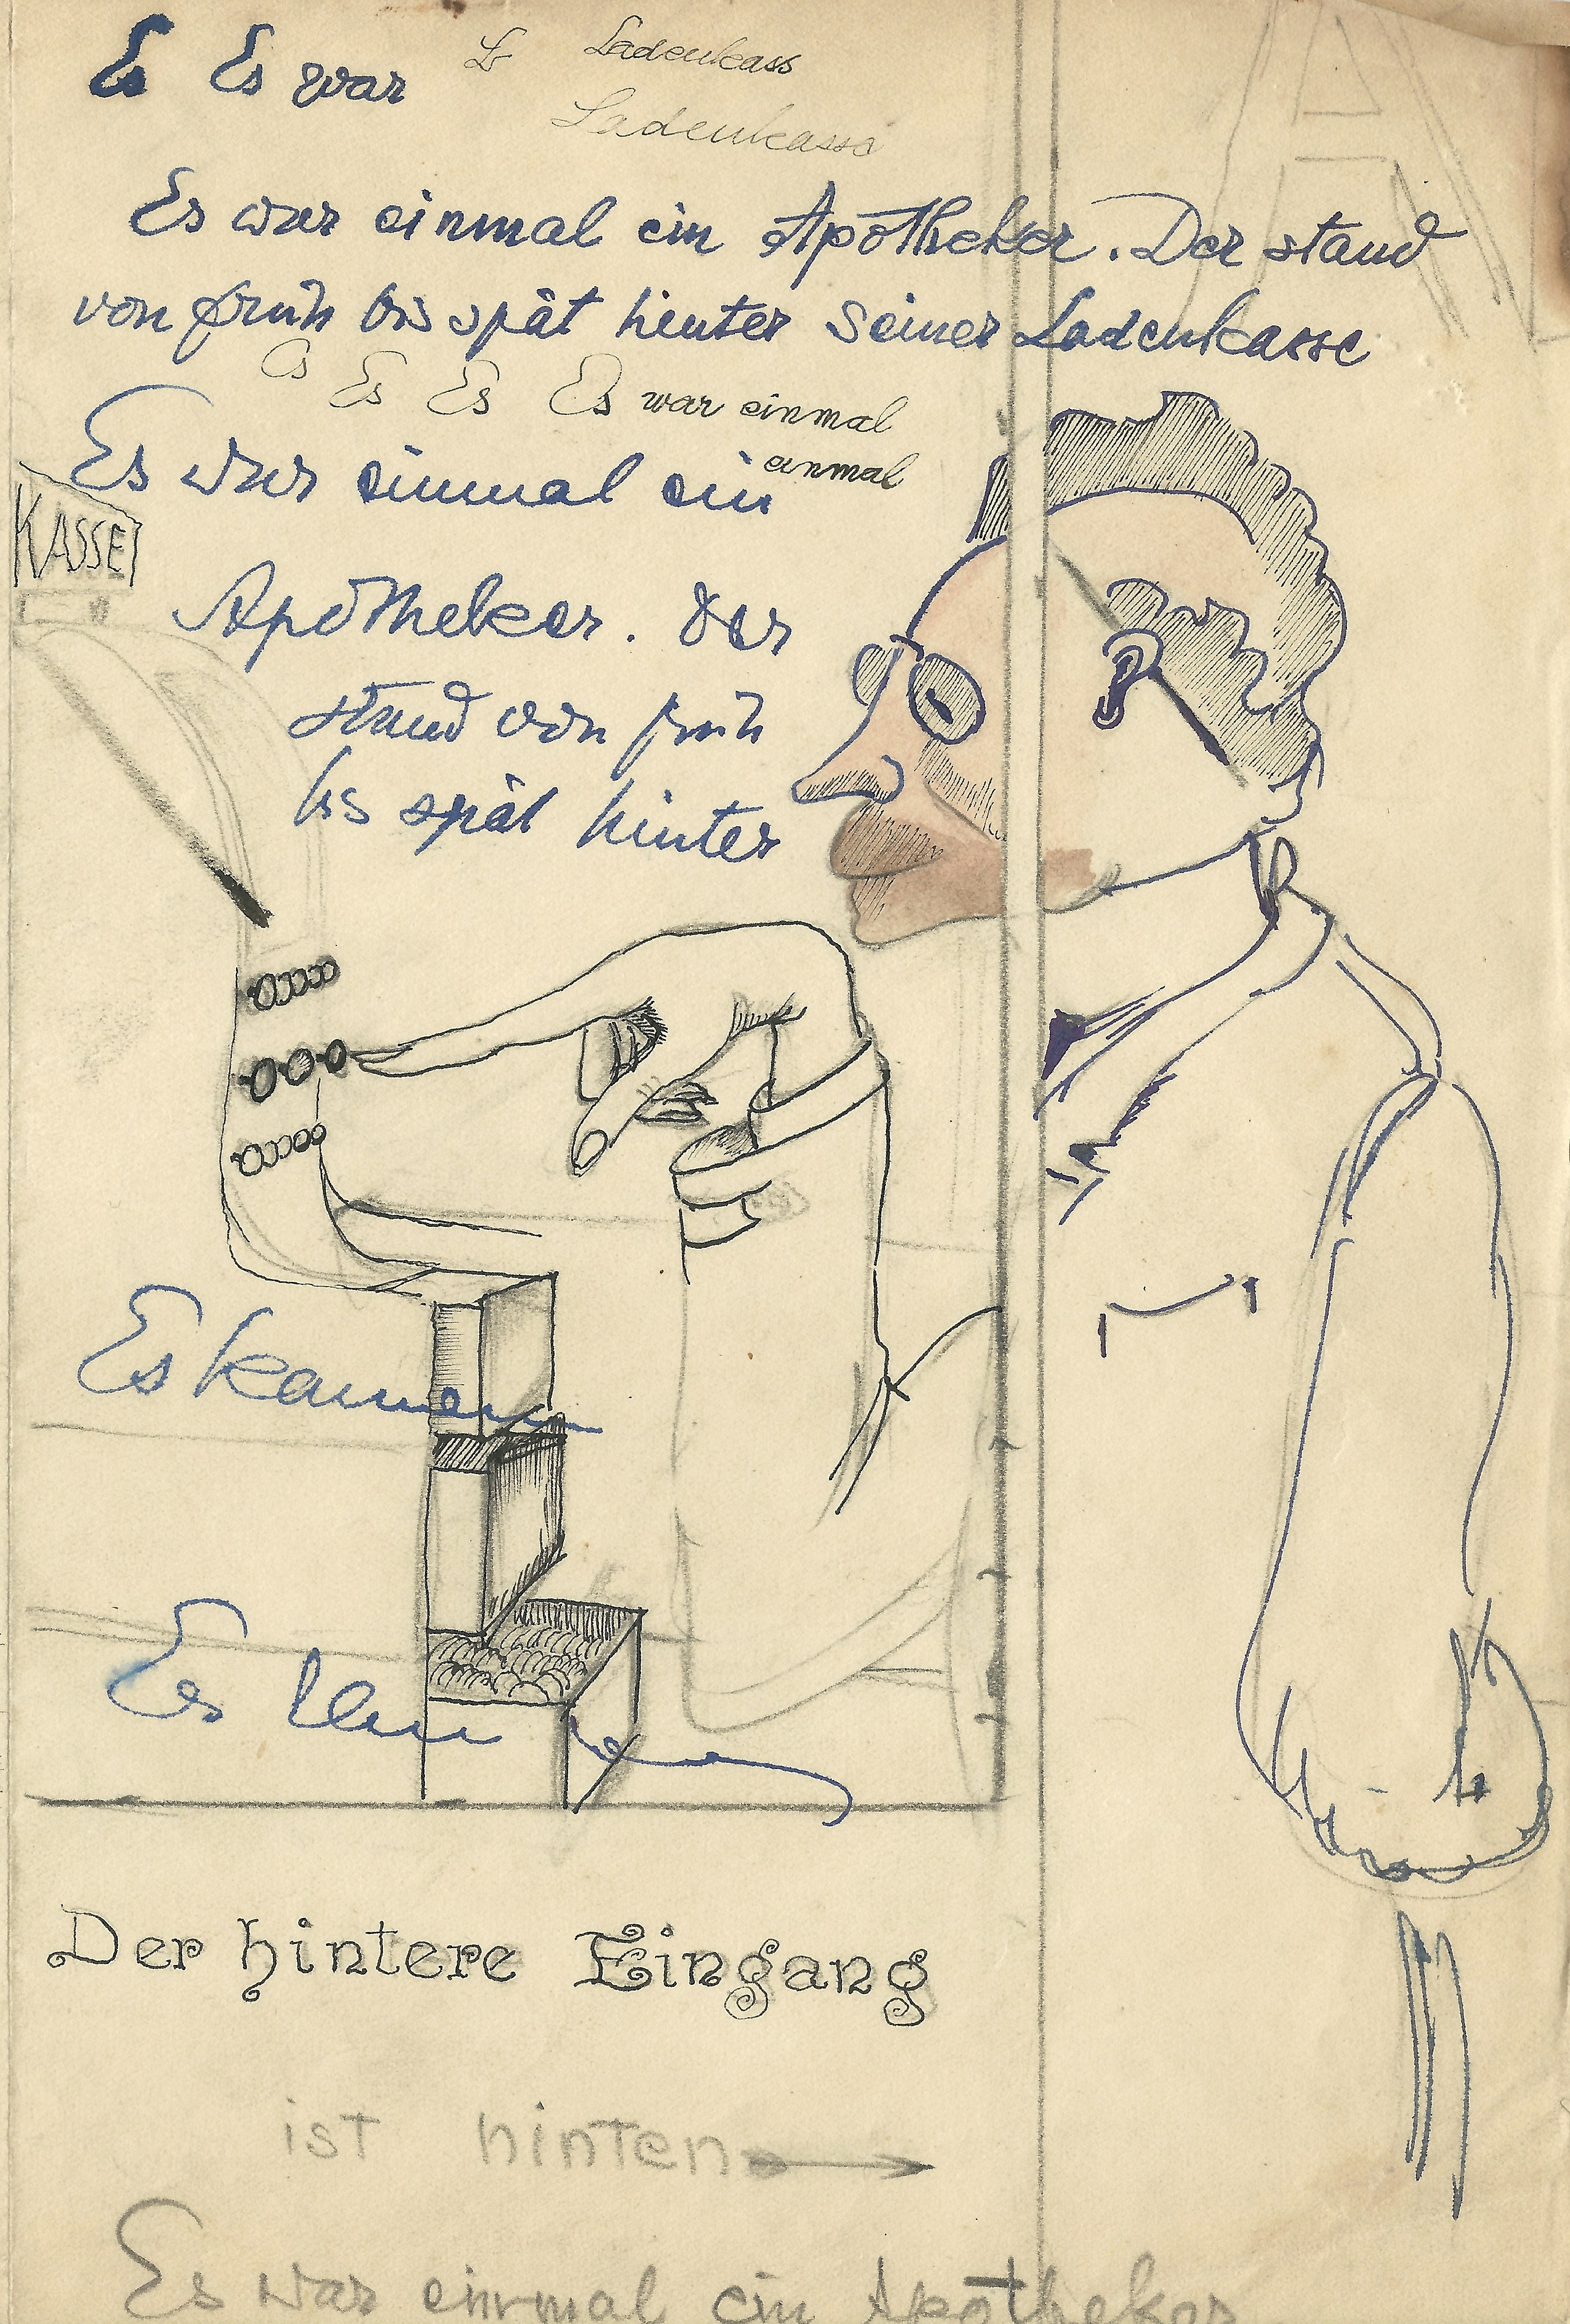 Es Es war L Ladenkass
Ladenkasse
Es war einmal ein Apotheker. Der stand
von früh bis spät hinter seiner Ladenkasse
Es Es Es Es war einmal
einmal
Es war einmal ein
KASSE
Apotheker. Der
stand von früh
bis spät hinter
Es kamen
Es
Der hintere Eingang
ist hinten
Es war einmal ein Apotheker